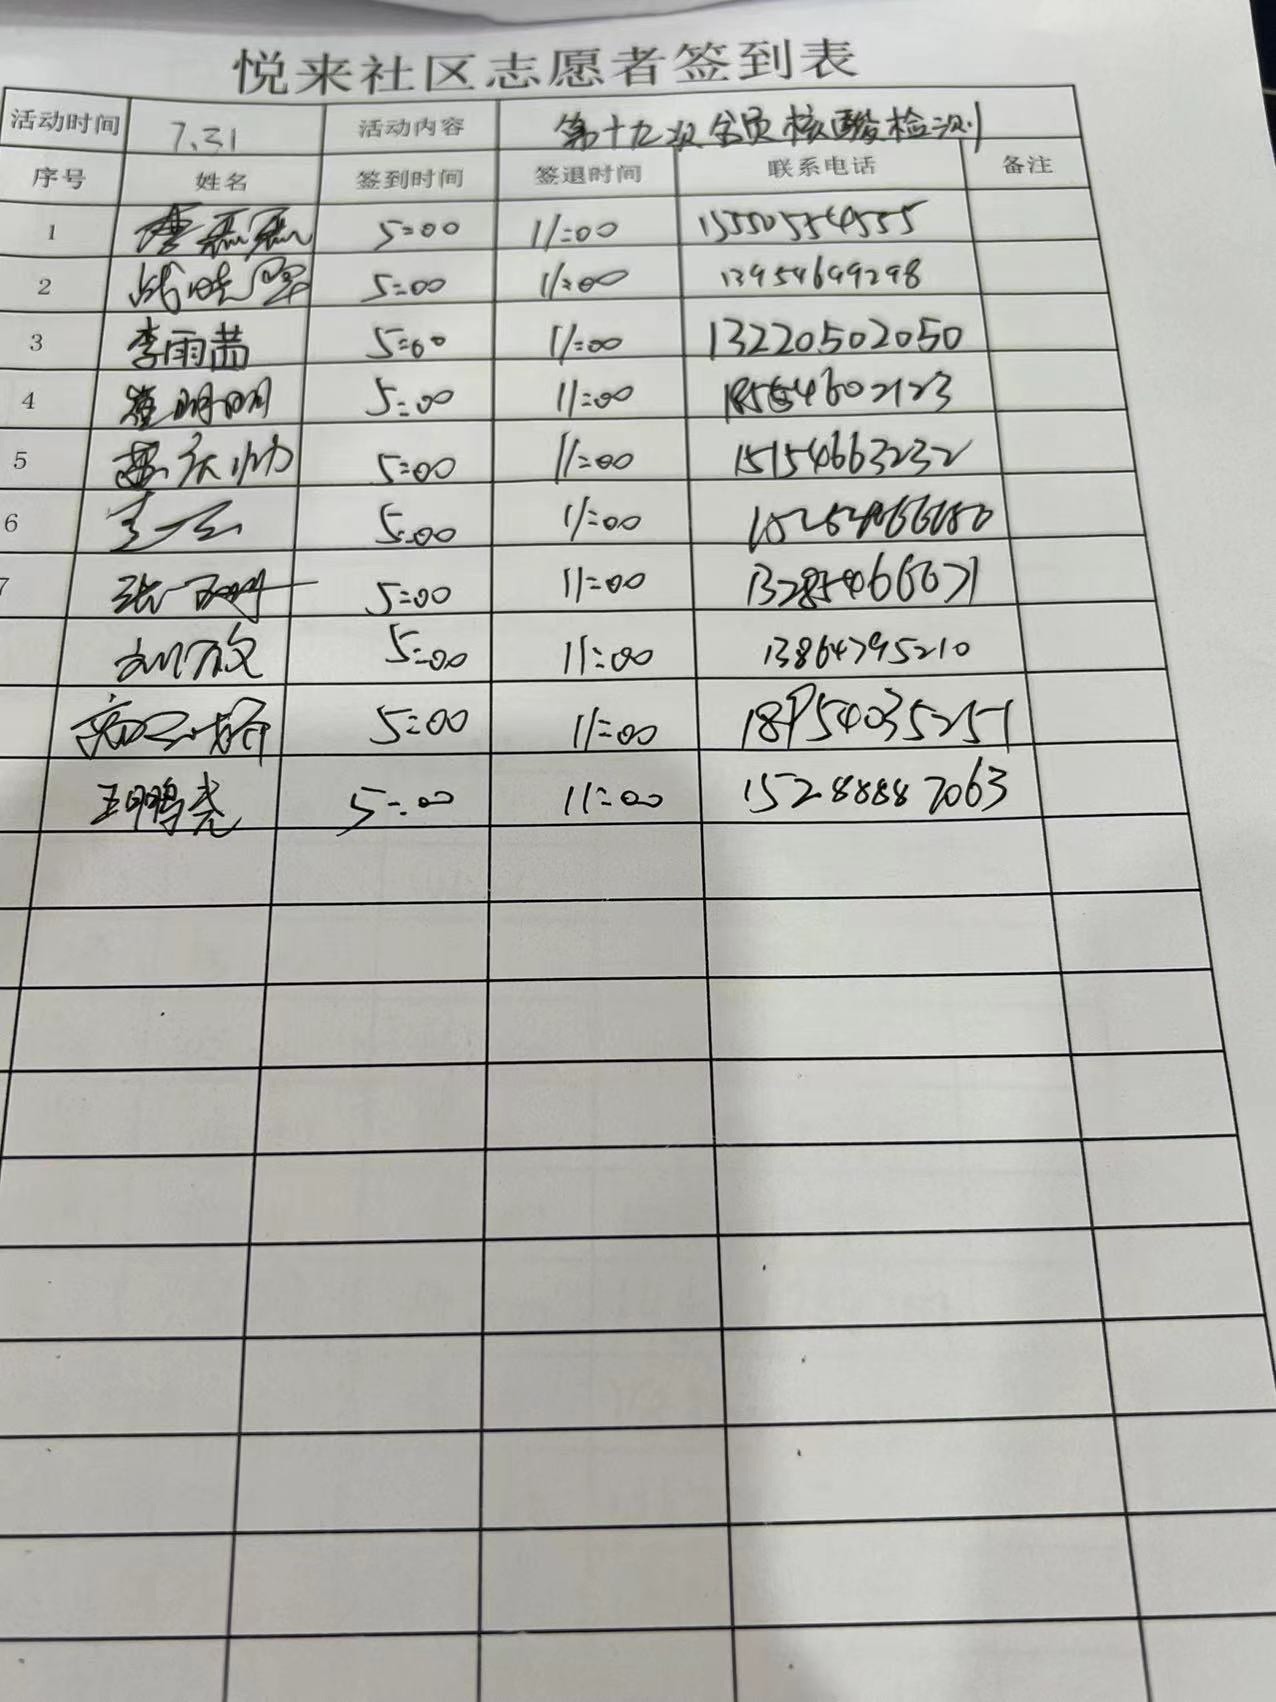 悦来社区志愿者签到表
活动时间 7.31 活动内容 第十九次全员核酸检测
序号 姓名 签到时间 签退时间 联系电话 备注
1 5:00 11:00 15550554555
2 5:00 11:00 13954699298
3 李雨茜 5:00 11:00 13220502050
4 崔明明 5:00 11:00 18554602123
5 5:00 11:00 15154663232
6 5:00 11:00
7 张 5:00 11:00
刘放 5:00 11:00 13864795210
5:00 11:00 18954035251
王鹏尧 5:00 11:00 15288887063